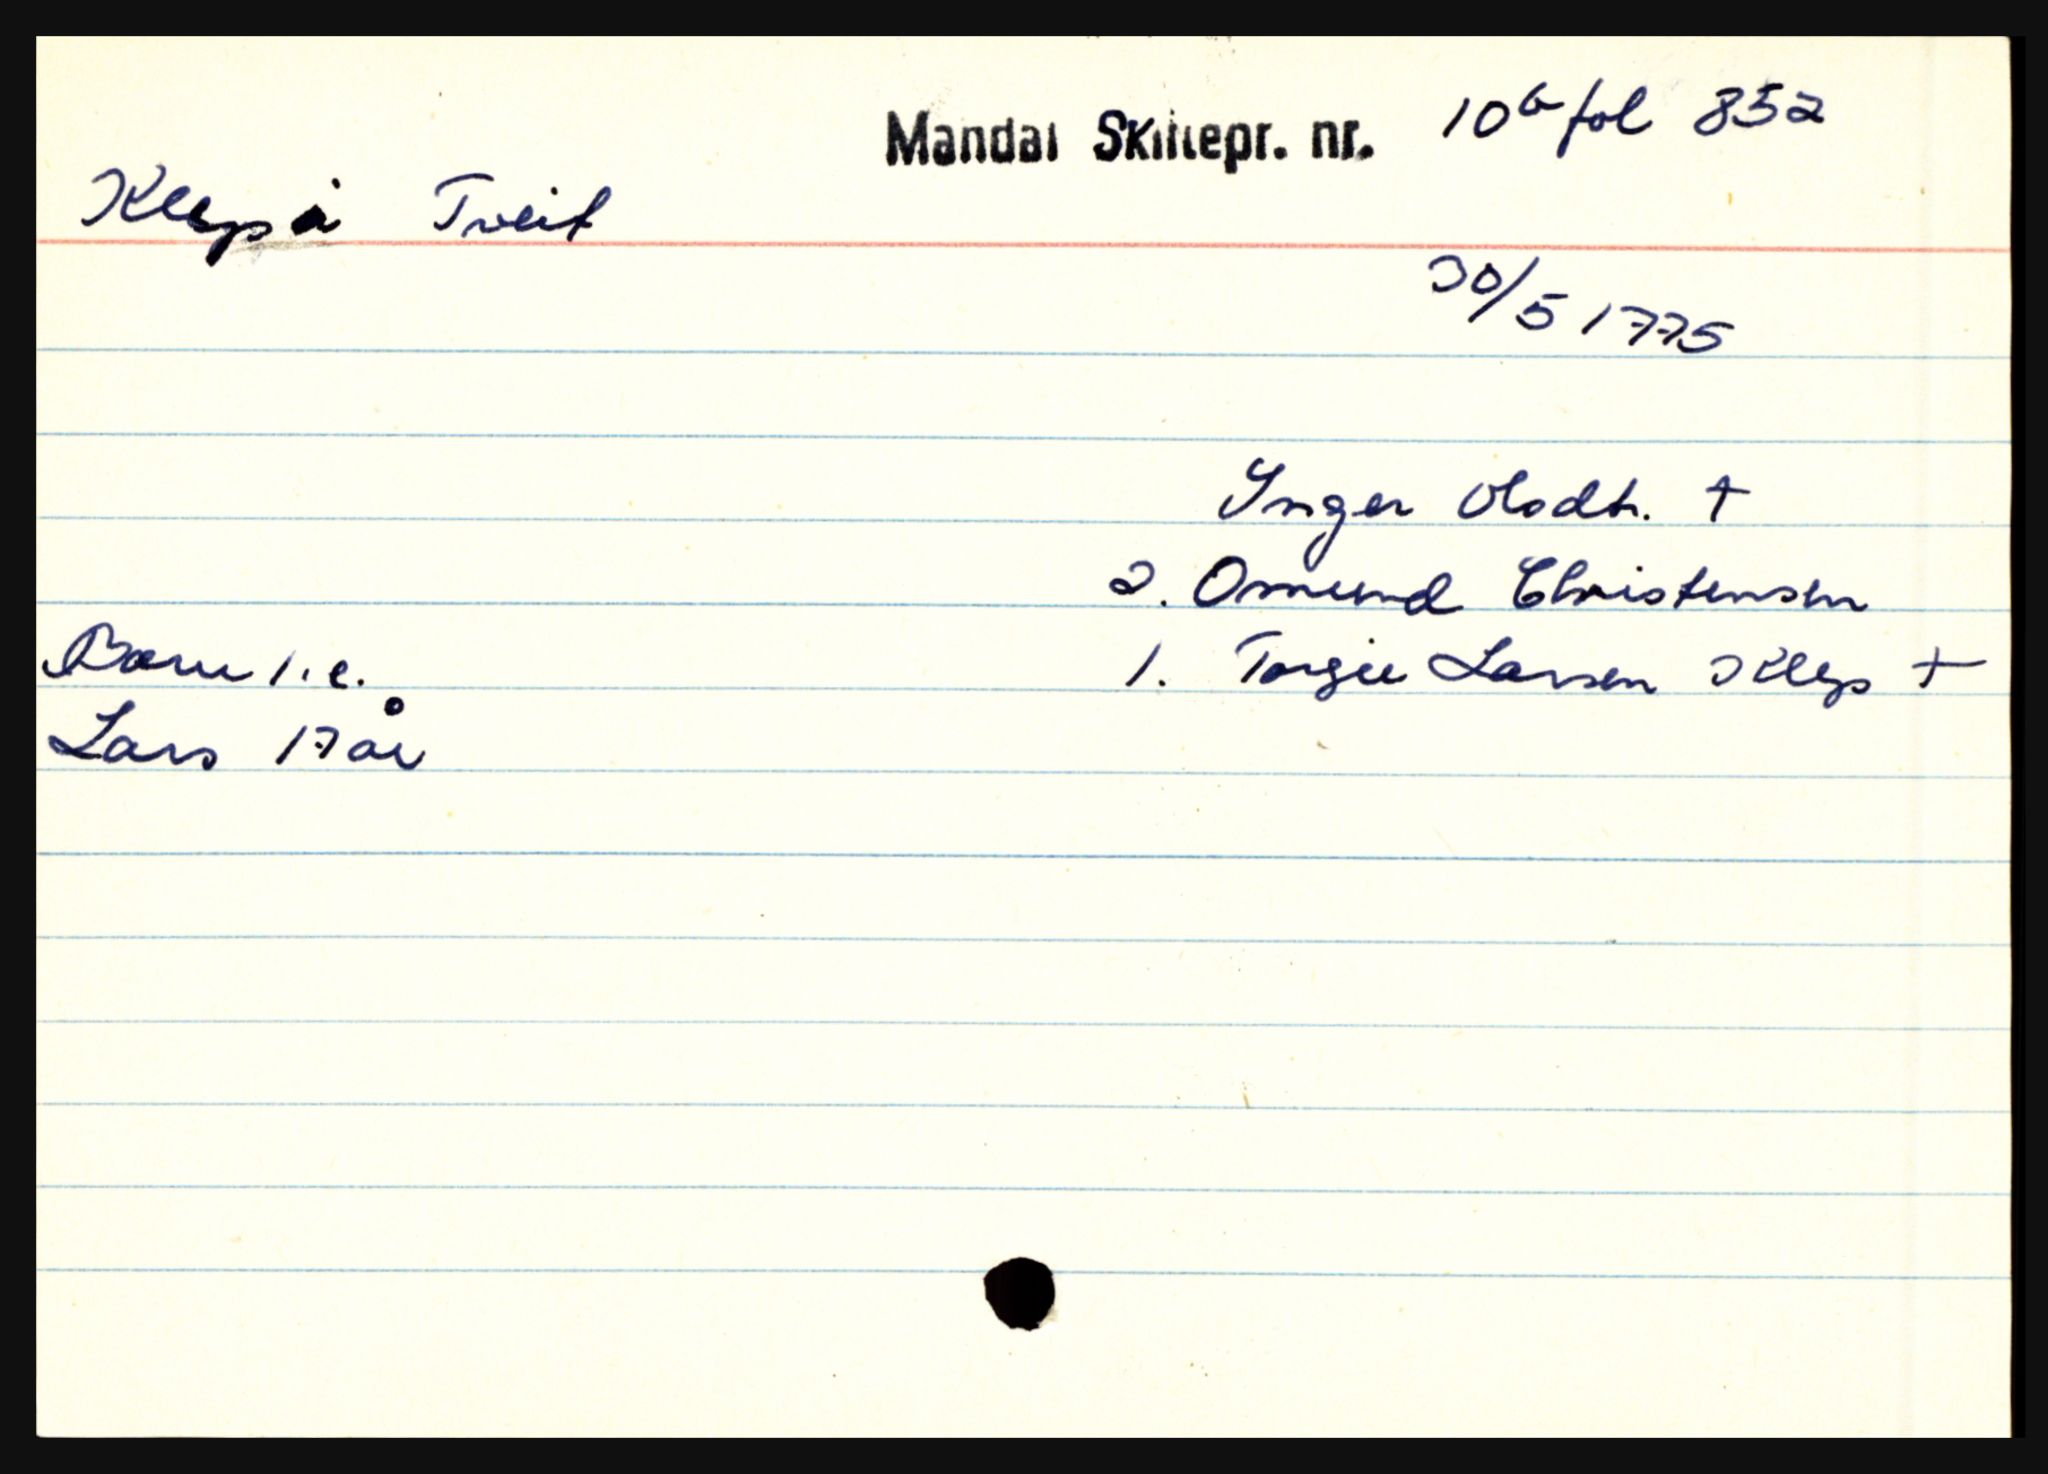 Mandal Skiftepr. nr. 10b fol 852
Klep i Tveit
30/5 1775
Ynger Olsdtr. †
2. Omund Christensen
Barn 1. e. 1. Torgie Larsen Klep †
Lars 17 år